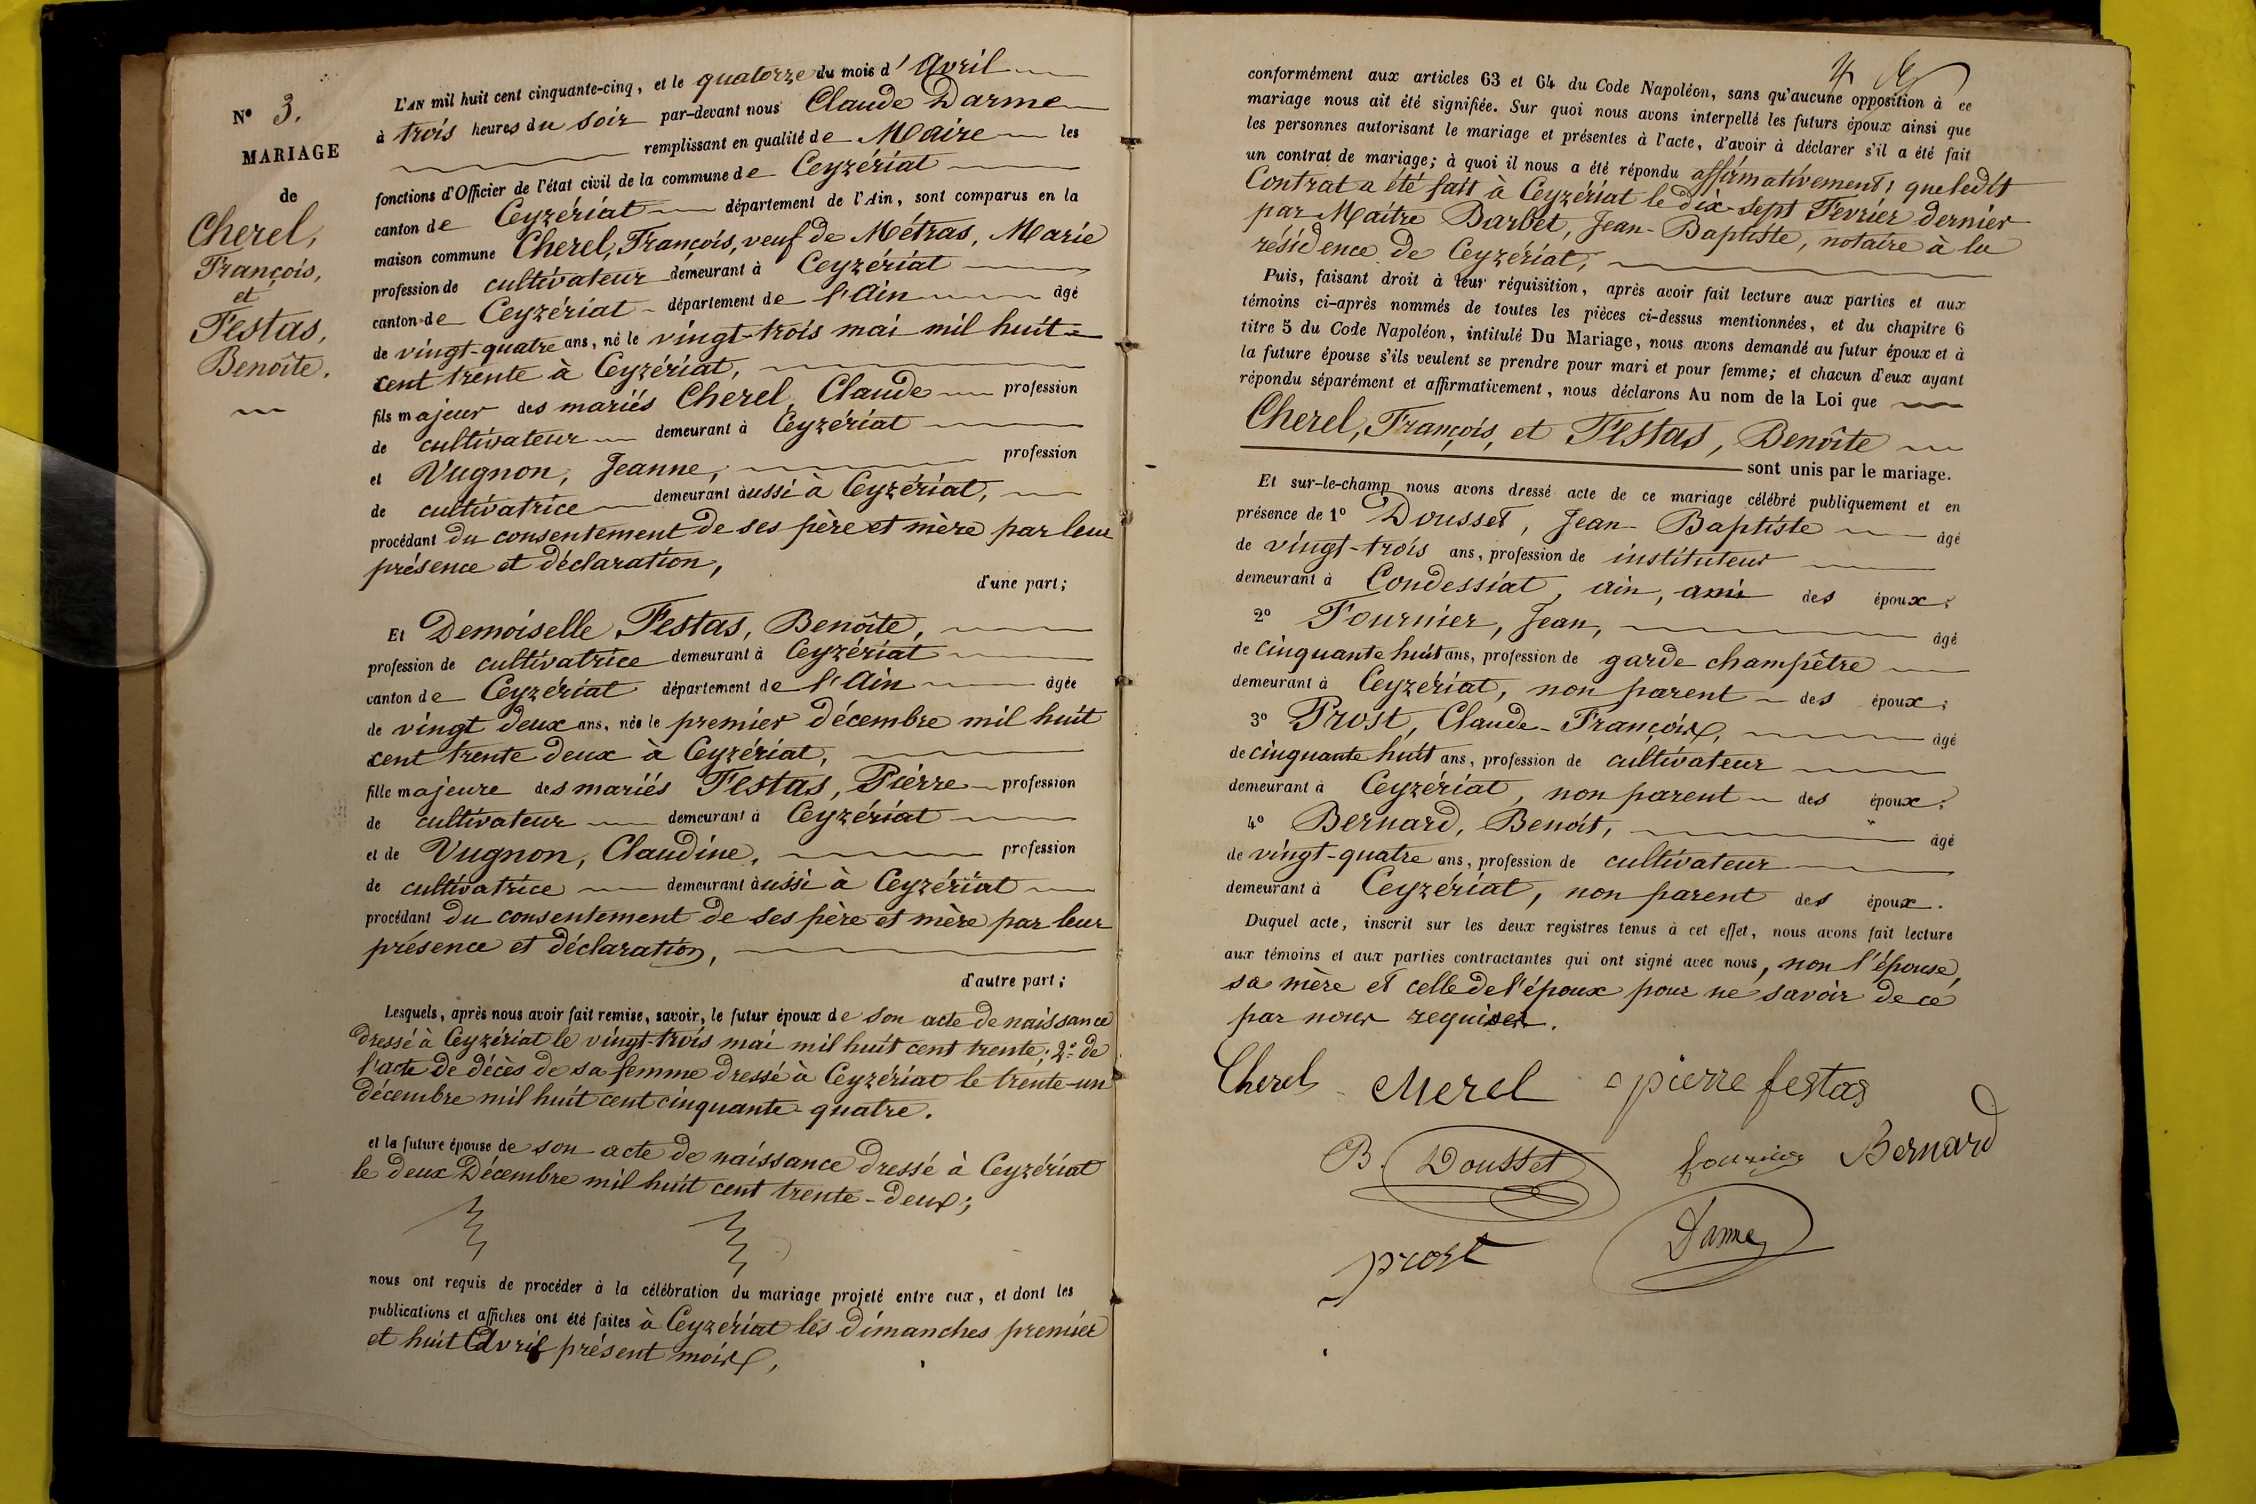 N° 3.
MARIAGE
de
Cherel,
François,
et
Festas,
Benoîte.
L'AN mil huit cent cinquante-cinq, et le quatorze du mois d'Avril
à trois heures du soir par-devant nous Claude Darme
remplissant en qualité de Maire les
fonctions d'Officier de l'état civil de la commune de Ceyzériat
canton de Ceyzériat département de l'Ain, sont comparus en la
maison commune Cherel, François, veuf de Métras, Marie
profession de cultivateur demeurant à Ceyzériat
canton de Ceyzériat département de l'Ain âgé
de vingt-quatre ans, né le vingt-trois mai mil huit
cent trente à Ceyzériat,
fils majeur des mariés Cherel, Claude profession
de cultivateur demeurant à Ceyzériat
et Vugnon, Jeanne, profession
de cultivatrice demeurant aussi à Ceyzériat,
procédant du consentement de ses père et mère par leur
présence et déclaration,
d'une part;
Et Demoiselle Festas, Benoîte,
profession de cultivatrice demeurant à Ceyzériat
canton de Ceyzériat département de l'Ain âgée
de vingt deux ans, née le premier décembre mil huit
cent trente deux à Ceyzériat,
fille majeure des mariés Festas, Pierre profession
de cultivateur demeurant à Ceyzériat
et de Vugnon, Claudine, profession
de cultivatrice demeurant aussi à Ceyzériat
procédant du consentement de ses père et mère par leur
présence et déclaration,
d'autre part;
Lesquels, après nous avoir fait remise, savoir, le futur époux de son acte de naissance
dressé à Ceyzériat le vingt-trois mai mil huit cent trente; 2° de
l'acte de décès de sa femme dressé à Ceyzériat le trente-un
décembre mil huit cent cinquante-quatre.
et la future épouse de son acte de naissance dressé à Ceyzériat
le deux Décembre mil huit cent trente-deux;
nous ont requis de procéder à la célébration du mariage projeté entre eux, et dont les
publications et affiches ont été faites à Ceyzériat les dimanches premier
et huit Avril présent mois,
conformément aux articles 63 et 64 du Code Napoléon, sans qu'aucune opposition à ce
mariage nous ait été signifiée. Sur quoi nous avons interpellé les futurs époux ainsi que
les personnes autorisant le mariage et présentes à l'acte, d'avoir à déclarer s'il a été fait
un contrat de mariage; à quoi il nous a été répondu affirmativement; que ledit
Contrat a été fait à Ceyzériat le dix-sept Fevrier dernier
par Maitre Barbet, Jean-Baptiste, notaire à la
résidence de Ceyzériat,
Puis, faisant droit à leur réquisition, après avoir fait lecture aux parties et aux
témoins ci-après nommés de toutes les pièces ci-dessus mentionnées, et du chapitre 6
titre 5 du Code Napoléon, intitulé Du Mariage, nous avons demandé au futur époux et à
la future épouse s'ils veulent se prendre pour mari et pour femme; et chacun d'eux ayant
répondu séparément et affirmativement, nous déclarons Au nom de la Loi que
Cherel, François, et Festas, Benoîte
sont unis par le mariage.
Et sur-le-champ nous avons dressé acte de ce mariage célébré publiquement et en
présence de 1° Dousset, Jean-Baptiste âgé
de vingt-trois ans, profession de instituteur
demeurant à Condessiat, Ain, ami des époux;
2° Fournier, Jean, âgé
de cinquante huit ans, profession de garde champêtre
demeurant à Ceyzériat, non parent des époux;
3° Prost, Claude-François, âgé
de cinquante huit ans, profession de cultivateur
demeurant à Ceyzériat, non parent des époux;
4° Bernard, Benoît, âgé
de vingt-quatre ans, profession de cultivateur
demeurant à Ceyzériat, non parent des époux.
Duquel acte, inscrit sur les deux registres tenus à cet effet, nous avons fait lecture
aux témoins et aux parties contractantes qui ont signé avec nous, non l'épouse,
sa mère et celle de l'époux pour ne savoir de ce
par nous requises.
Cherel Cherel pierre festas
B. Dousset fournier Bernard
prost Darme